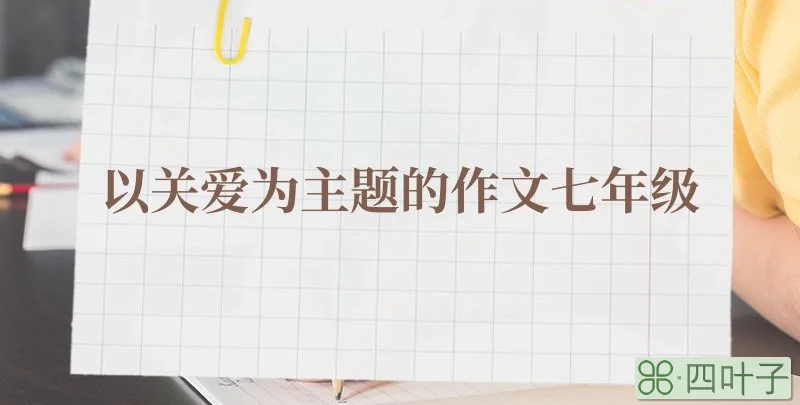 以关爱为主题的作文七年级
四叶子